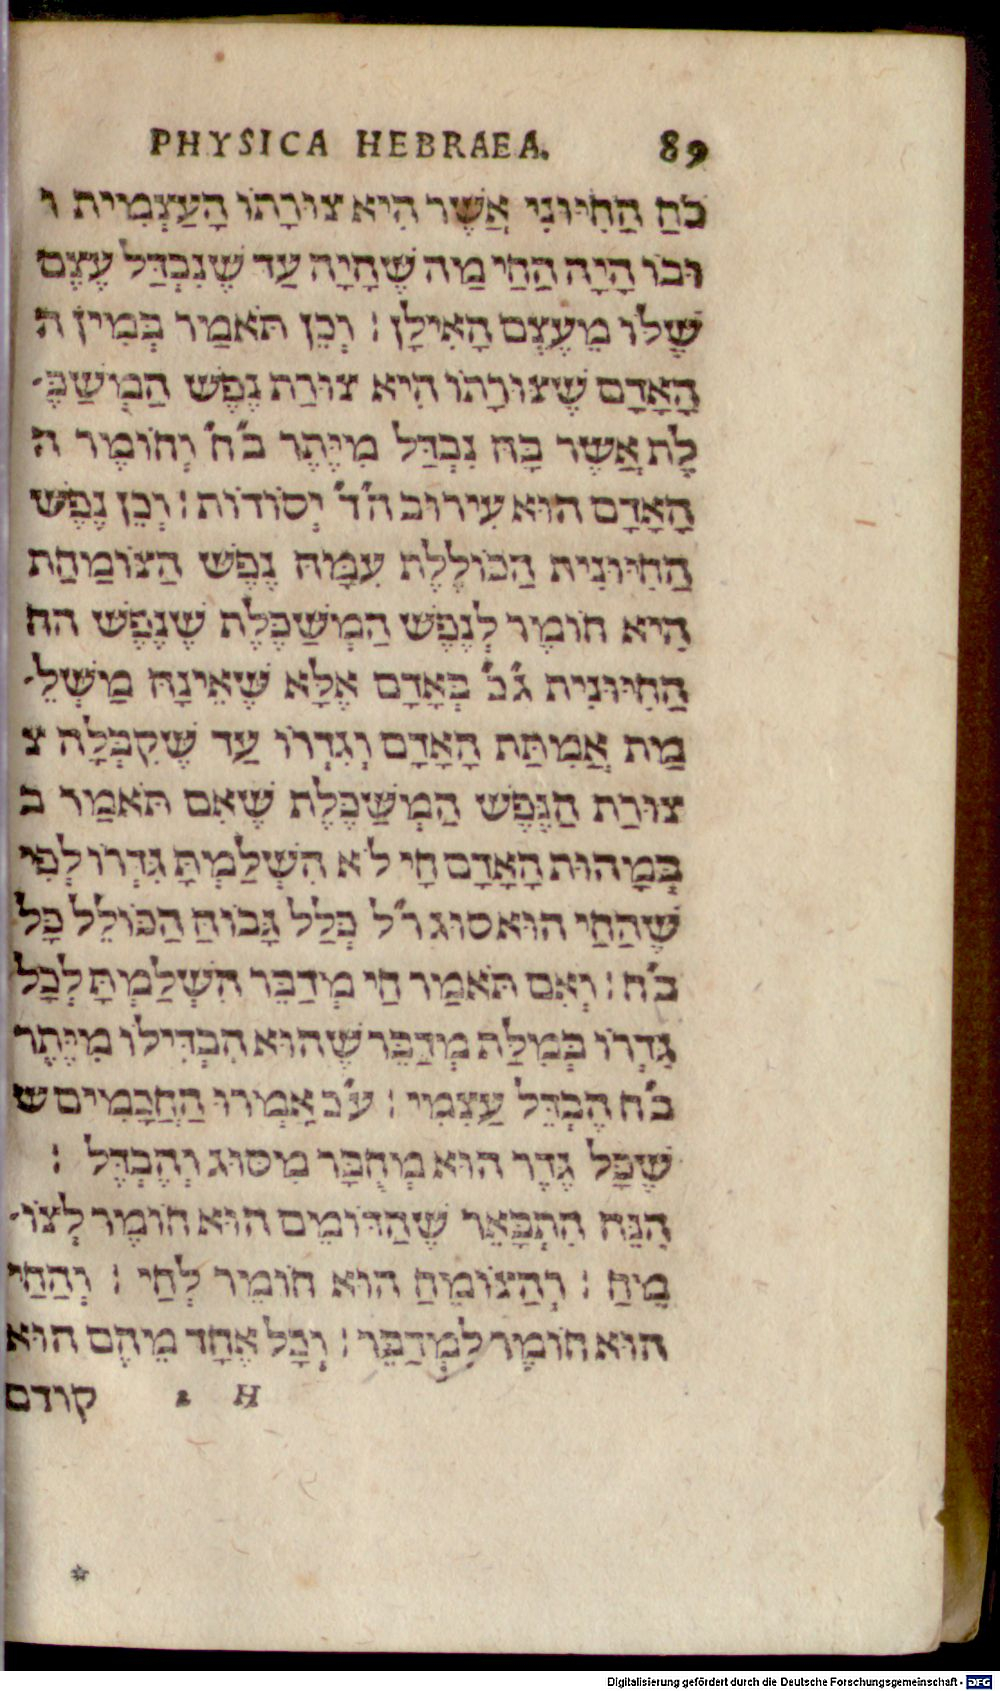 PHYSICA HEBRAEA. 89
כֹּחַ הַחִיּוּנִי אֲשֶׁר הִיא צוּרָתוֹ הָעַצְמִית ו
וּבוֹ הָיָה הַחַי מַה שֶׁהָיָה עַד שֶׁנִבְדַּל עֶצֶם
שֶׁלּוֹ מֵעֶצֶם הָאִילָן : וְכֵן תֹּאמַר בְּמִין ה
הָאָדָם שֶׁצוּרָתוֹ הִיא צוּרַת נֶפֶשׁ הַמְשַׂכֶּ־
לֶת אֲשֶׁר בָּהּ נִבְדַּל מִיֶּתֶר ב״ח וְחוֹמֶר ה
הָאָדָם הוּא עִירוּב ה״ד יְסוֹדוֹת : וְכֵן נֶפֶשׁ
הַחִיּוּנִית הַכּוֹלֶלֶת עִמָּהּ נֶפֶשׁ הַצּוֹמַחַת
הִיא חוֹמֶר לְנֶפֶשׁ הַמְשַׂכֶּלֶת שֶׁנֶפֶשׁ הח
הַחִיּוּנִית ג״כ בְּאָדָם אֶלָּא שֶׁאֵינָהּ מַשְׁלֶ־
מַת אֲמִתַּת הָאָדָם וְגִדְרוֹ עַד שֶׁקִבְּלָה צ
צוּרַת הַנֶּפֶשׁ הַמְשַׂכֶּלֶת שֶׁאִם תֹּאמַר ב
בְּמָהוּת הָאָדָם חָי לֹא הִשְׁלַמְתָּ גִּדְרוֹ לְפִי
שֶׁהַחַי הוּא סוּג ר״ל כְּלַל גָּבוֹהַּ הַכּוֹלֵל כָּל
ב״ח : וְאִם תֹּאמַר חַי מְדַבֵּר הִשְׁלַמְתָּ לְכָל
גִּדְרוֹ בְּמִלַּת מְדַבֵּר שֶׁהוּא הִבְדִּילוֹ מִיֶּתֶר
ב״ח הֶבְדֵּל עַצְמִי : ע״כ אָמְרוּ הַחֲכָמִים ש
שֶׁכָּל גֶּדֶר הוּא מְחֻבָּר מִסּוּג וְהֶבְדֵּל :
הִנֵּה הִתְבָּאֵר שֶׁהַדּוֹמֵם הוּא חוֹמֶר לְצוֹ־
מֵחַ : וְהַצּוֹמֵחַ הוּא חוֹמֶר לְחַי : וְהַחַי
הוּא חוֹמֶר לִמְדַבֵּר : וְכָל אֶחָד מֵהֶם הוּא
H 2 קודם
Digitalisierung gefördert durch die Deutsche Forschungsgemeinschaft - DFG